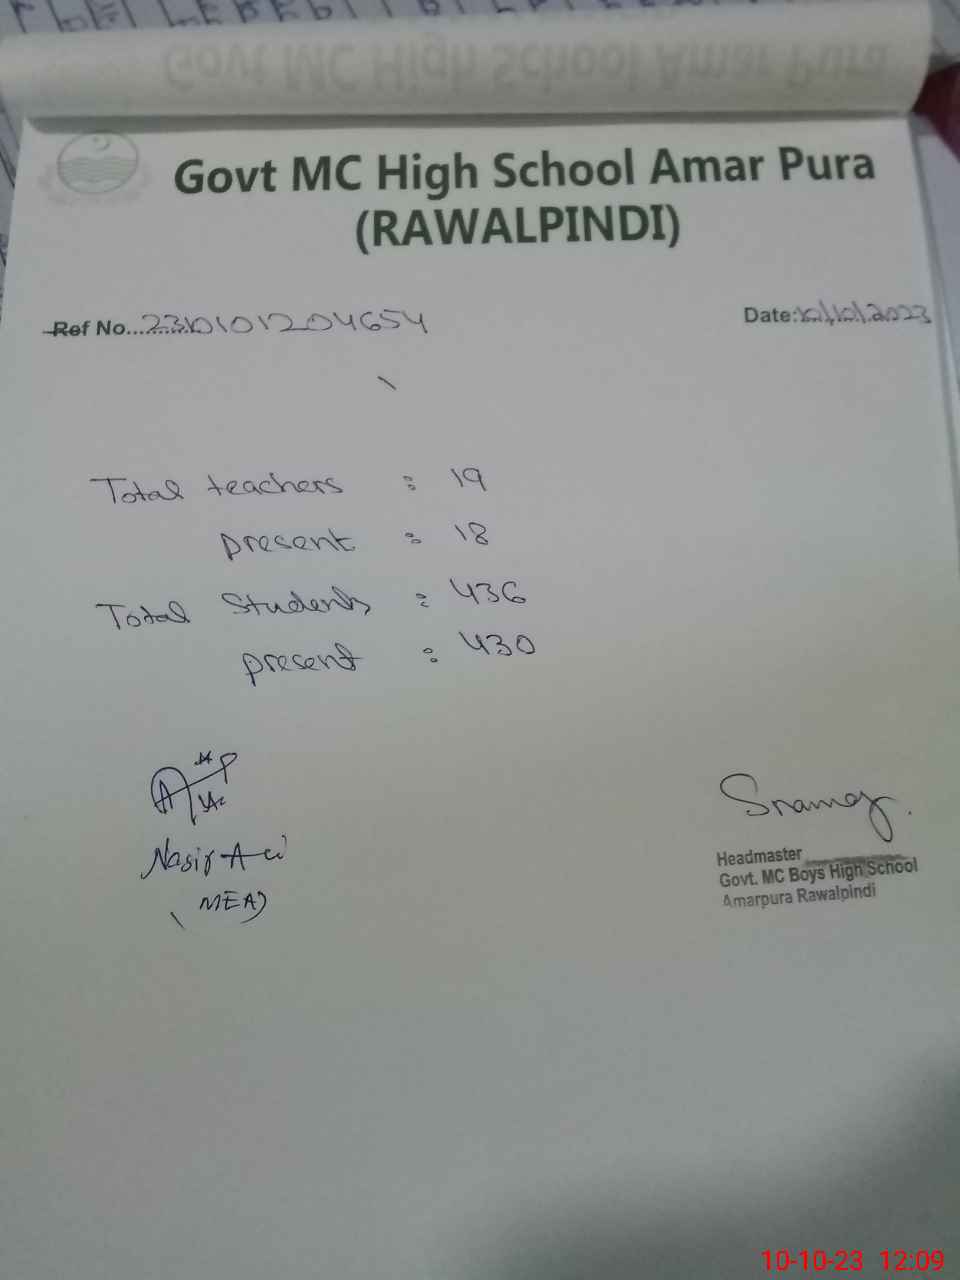 Govt MC High School Amar Pura
(RAWALPINDI)
Ref No...2310101204654
Date:10/10/2023
Total teachers : 19
present : 18
Total Students : 436
present : 430
Nasir Ali
MEA
Headmaster
Govt. MC Boys High School
Amarpura Rawalpindi
10-10-23 12:09